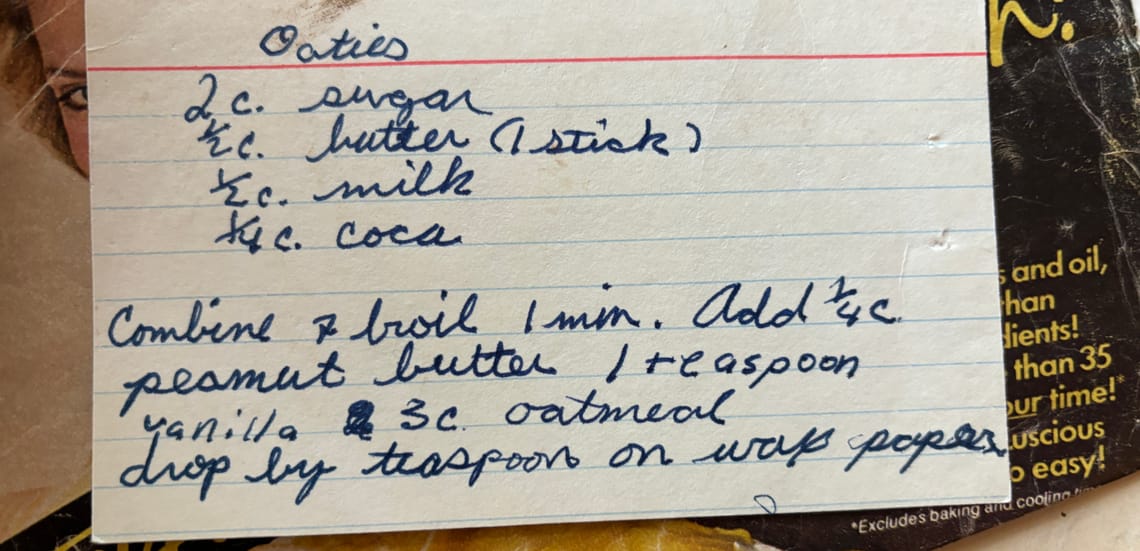 Oaties
2 c. sugar
½ c. butter (1 stick)
½ c. milk
¼ c. coca
Combine & broil 1 min. Add ¼ c.
peamut butter 1 teaspoon
vanilla 3 c. oatmeal
drop by teaspoon on wax paper
h.
and oil,
than 35
time!*
easy!
*Excludes baking and cooling